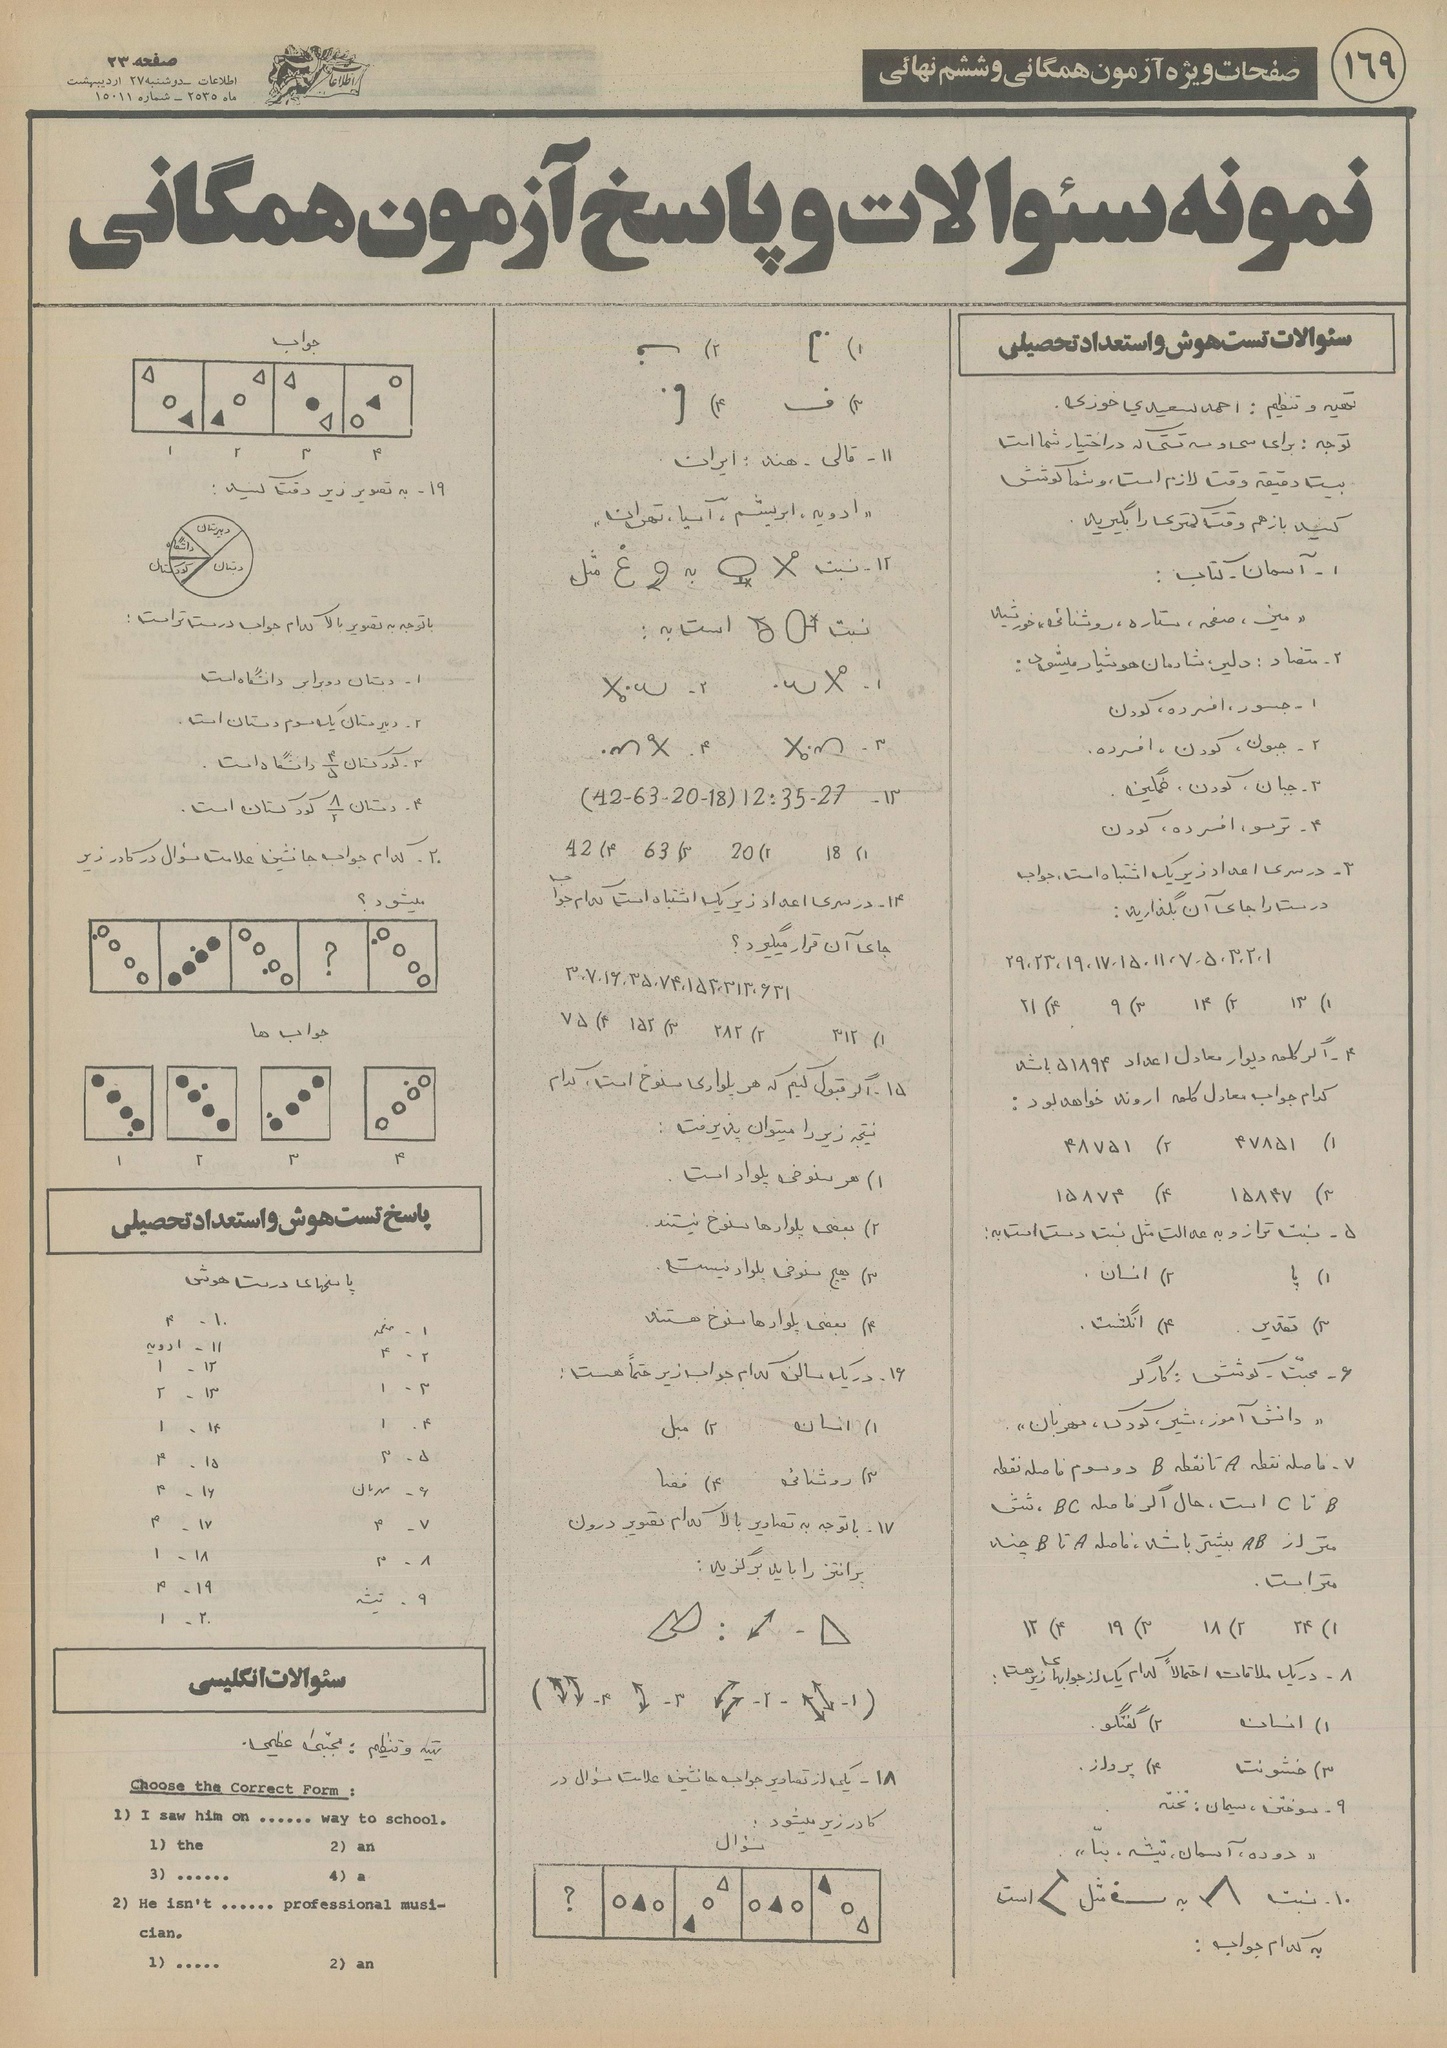 ۱۶۹
صفحات ویژه آزمون همگانی و ششم نهائی
صفحه ۲۳
اطلاعات – دوشنبه ۲۷ اردیبهشت
ماه ۲۵۳۵ – شماره ۱۵۰۱۱
نمونه سئوالات و پاسخ آزمون همگانی
سئوالات تست هوش و استعداد تحصیلی
تهیه و تنظیم : احمد سعیدی حوزی.
توجه : برای سی و سه تستی که در اختیار شما است
بیست دقیقه وقت لازم است، و شما کوشش
کنید باز هم وقت کمتری را بگیرید.
۱- آسمان- کتاب :
« مین، صفحه، ستاره، روشنائی، خورشید
۲- متضاد : دلیر، شادمان هوشیار میشود:
۱- جسور، افسرده، کودن
۲- جبون، کودن، افسرده.
۳- جبان، کودن، غمگین.
۴- ترسو، افسرده، کودن
۳- در سری اعداد زیر یک اشتباه است، جواب
درست را جای آن بگذارید :
۲۹،۲۳،۱۹،۱۷،۱۵،۱۱،۷،۵،۳،۲،۱
۱) ۱۳ ۲) ۱۴ ۳) ۹ ۴) ۲۱
۴- اگر کلمه دیوار معادل اعداد ۵۱۸۹۴ باشد
کدام جواب معادل کلمه اروند خواهد بود :
۱) ۴۷۸۵۱ ۲) ۴۸۷۵۱
۳) ۱۵۸۴۷ ۴) ۱۵۸۷۴
۵- نسبت ترازو به عدالت مثل نسبت دست است به :
۱) پا ۲) انسان.
۳) تقدیر. ۴) انگشت.
۶- محبت- کوشش : کارگر
« دانش آموز، شیر، کودک، مهربان».
۷- فاصله نقطه A تا نقطه B دو سوم فاصله نقطه
B تا C است، حال اگر فاصله BC، شش
متر از AB بیشتر باشد، فاصله A تا B چند
متر است.
۱) ۲۴ ۲) ۱۸ ۳) ۱۹ ۴) ۱۲
۸- در یک ملاقات احتمالاً کدام یک از جوابهای زیر هست :
۱) انسان ۲) گفتگو.
۳) خشونت ۴) پرواز.
۹- سوختن، سیمان : تخته
« دوده، آسمان، تیشه، بنّا».
۱۰- نسبت به مثل است
به کدام جواب :
۱) ۲)
۳) ۴)
۱۱- قالی- هند : ایران
« ادویه، ابریشم، آسیا، تهران»
۱۲- نسبت به مثل
نسبت است به :
۱- ۲-
۳- ۴-
۱۳- 27-35:12(18-20-63-42)
۱) 18 ۲) 20 ۳) 63 ۴) 42
۱۴- در سری اعداد زیر یک اشتباه است کدام جواب
جای آن قرار میگیرد؟
۳،۷،۱۶،۳۵،۷۴،۱۵۳،۳۱۳،۶۳۱
۱) ۳۱۲ ۲) ۲۸۲ ۳) ۱۵۲ ۴) ۷۵
۱۵- اگر قبول کنیم که هر پلواری منوخ است، کدام
نتیجه زیر را میتوان پذیرفت :
۱) هر منوخی پلوار است.
۲) بعضی پلوارها منوخ نیستند.
۳) هیچ منوخی پلوار نیست.
۴) بعضی پلوارها منوخ هستند
۱۶- در یک سالن کدام جواب زیر حتماً هست :
۱) انسان ۲) مبل
۳) روشنائی ۴) فضا
۱۷- با توجه به تصاویر بالا کدام تصویر درون
پرانتز را باید برگزید :
(۱- ۲- ۳- ۴- )
۱۸- یکی از تصاویر جواب جانشین علامت سئوال در
کادر زیر میشود :
سئوال
?
جواب
۱ ۲ ۳ ۴
۱۹- به تصویر زیر دقت کنید :
دبیرستان
دانشگاه
دبستان
کودکستان
با توجه به تصویر بالا کدام جواب درست تر است :
۱- دبستان دو برابر دانشگاه است
۲- دبیرستان یک سوم دبستان است.
۳- کودکستان ۴/۵ دانشگاه است.
۴- دبستان ۸/۲ کودکستان است.
۲۰- کدام جواب جانشین علامت سئوال در کادر زیر
میشود ؟
?
جواب ها
۱ ۲ ۳ ۴
پاسخ تست هوش و استعداد تحصیلی
پاسخهای درست هوش
۱- صفحه
۲- ۴
۳- ۱
۴- ۱
۵- ۳
۶- مهربان
۷- ۴
۸- ۳
۹- تیشه
۱۰- ۴
۱۱- ادویه
۱۲- ۱
۱۳- ۲
۱۴- ۱
۱۵- ۴
۱۶- ۴
۱۷- ۴
۱۸- ۱
۱۹- ۴
۲۰- ۱
سئوالات انگلیسی
تهیه و تنظیم : مجتبی عظیمی.
Choose the Correct Form :
1) I saw him on ...... way to school.
1) the 2) an
3) ...... 4) a
2) He isn't ...... professional musi-
cian.
1) ..... 2) an